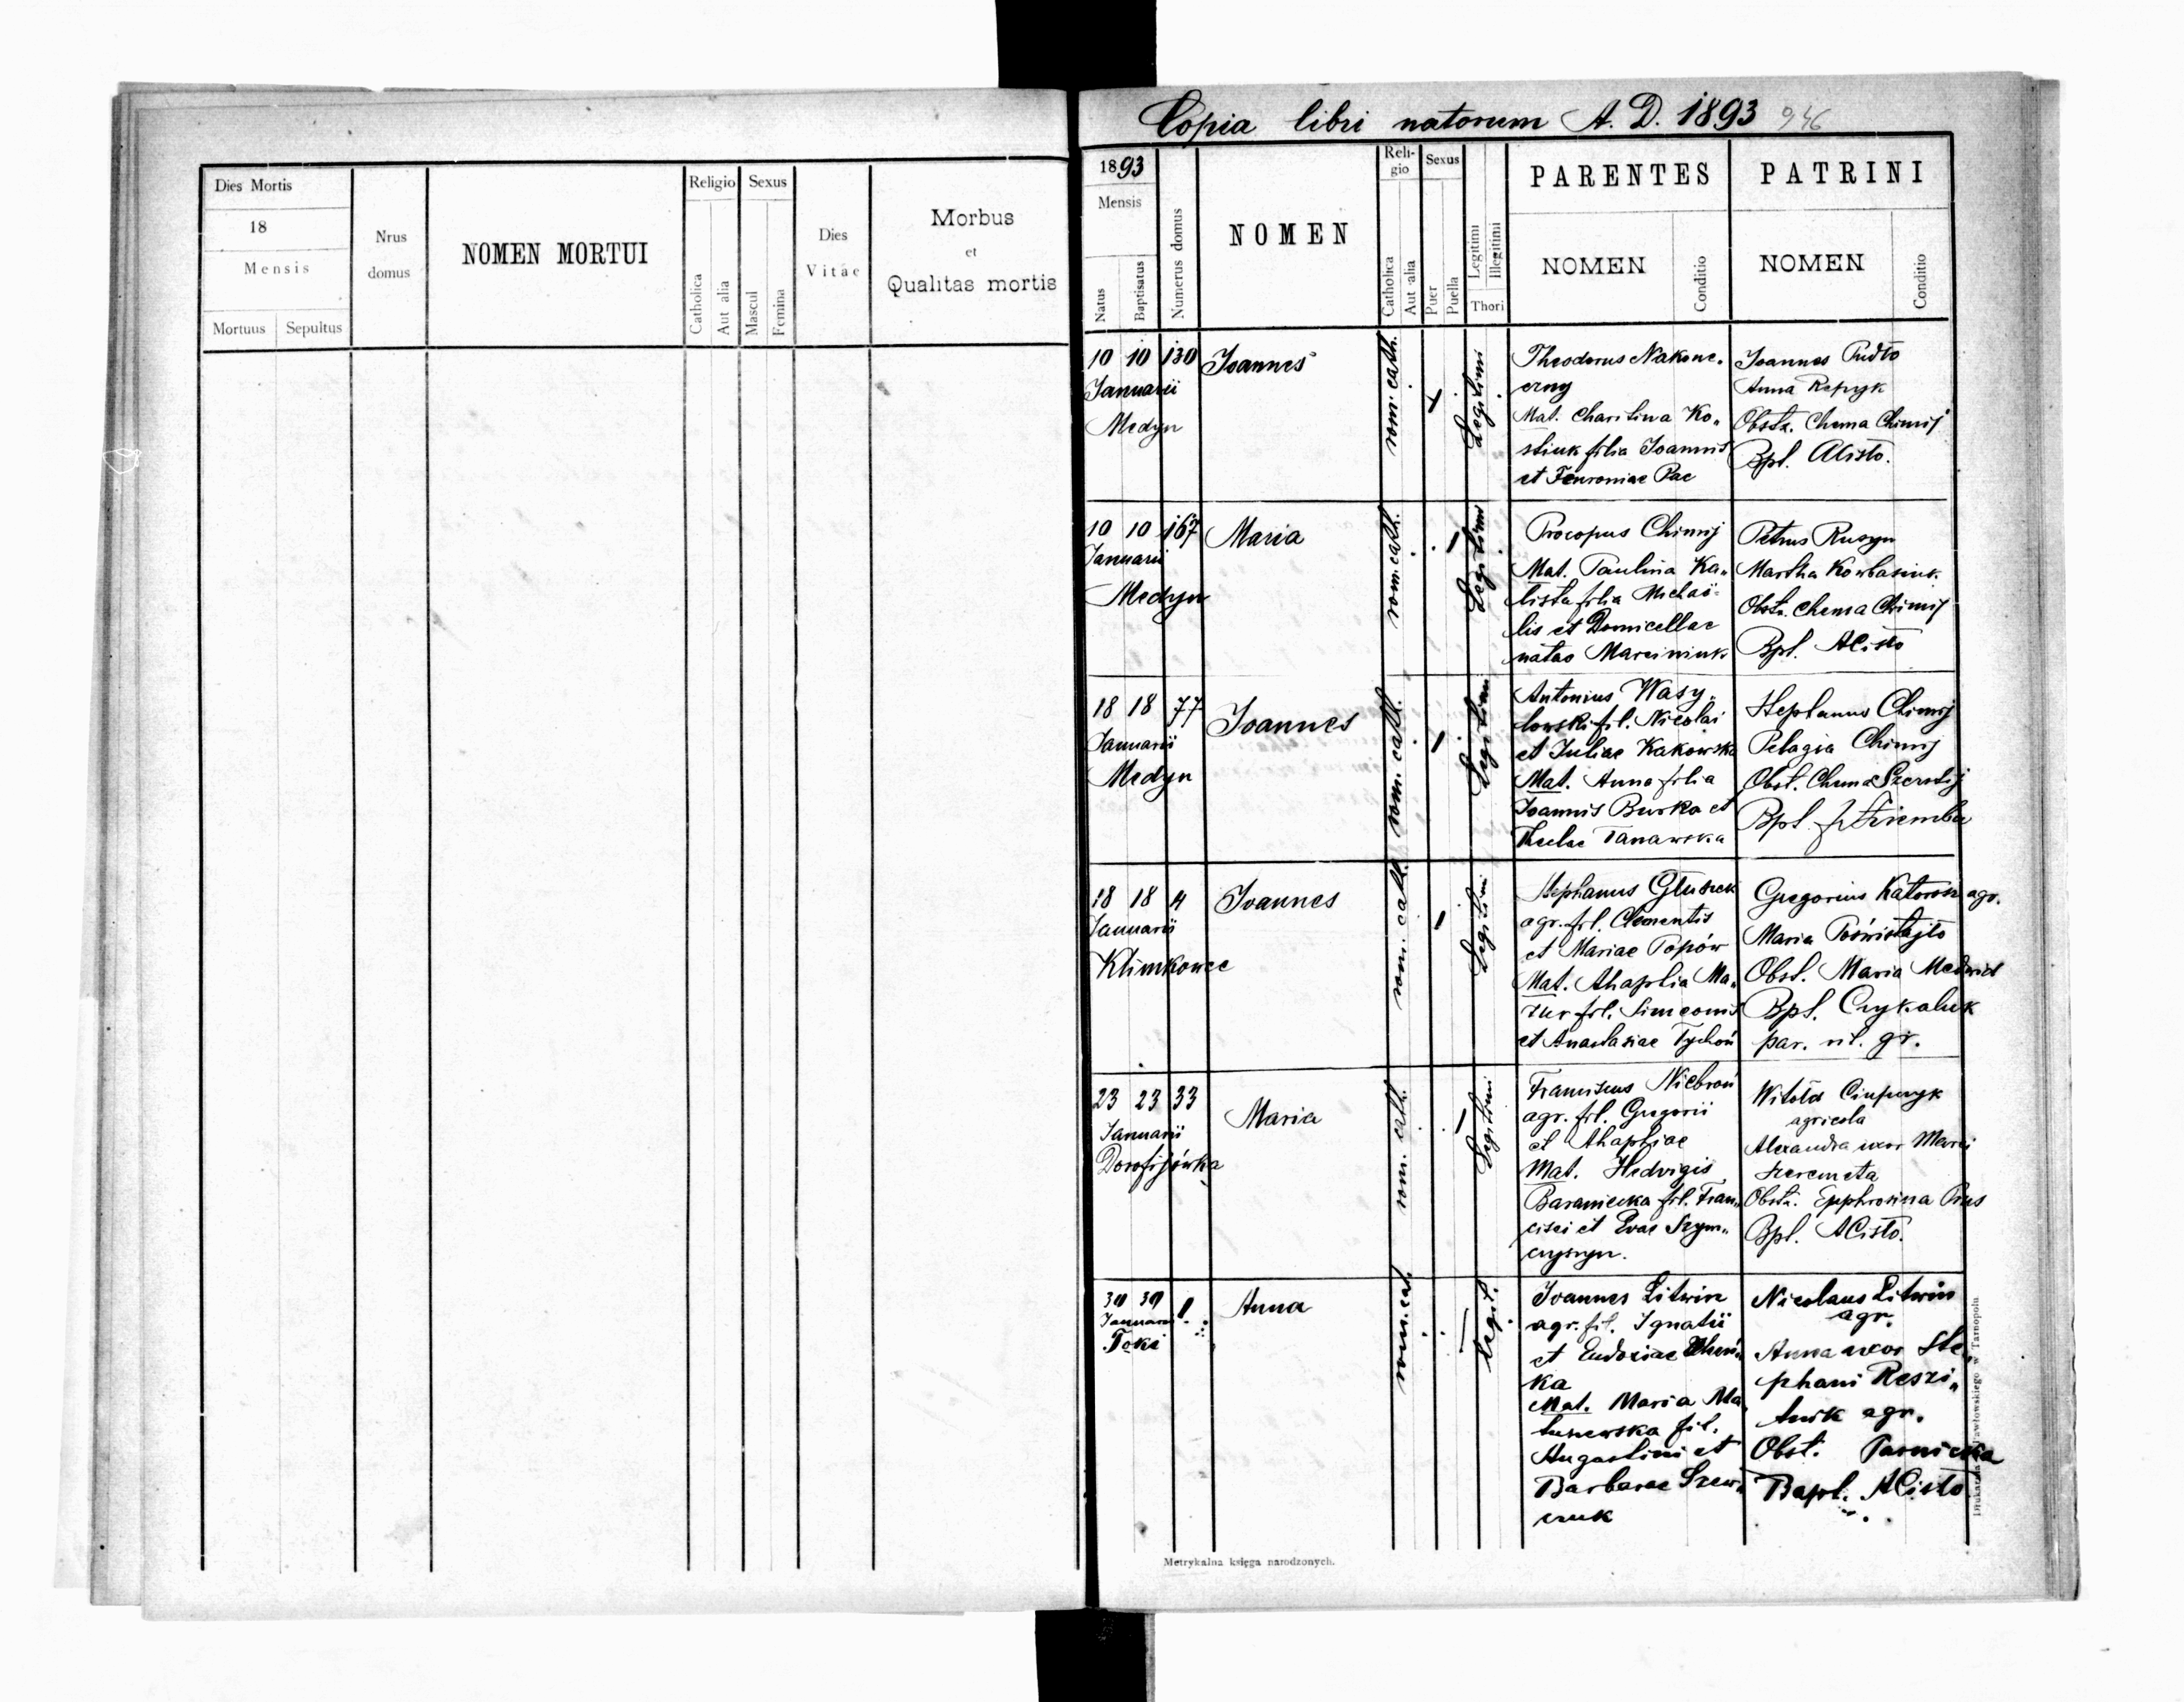 Dies Mortis
18
Mensis
Mortuus Sepultus
Nrus
domus
NOMEN MORTUI
Religio
Catholica
Aut alia
Sexus
Mascul
Femina
Dies
Vitae
Morbus
et
Qualitas mortis
Copia libri natorum A. D. 1893 946
1893
Mensis
Natus
Baptisatus
Numerus domus
NOMEN
Reli-
gio
Catholica
Aut alia
Sexus
Puer
Puella
Legitimi
Illegitimi
Thori
PARENTES
NOMEN
Conditio
PATRINI
NOMEN
Conditio
10 10 130
Januarii
Medyn
Joannes
rom. cath.
Legitimi
Theodorus Nakone-
czny
Mat. Charitina Ko„
stiuk filia Joannis
et Fewroniae Pac
Joannes Pudło
Anna Repczyk
Obstr. Chema Chimij
Bpt. ACisło.
10 10 167
Januarii
Medyn
Maria
rom. cath.
Legitimi
Procopus Chimij
Mat. Paulina Ka„
lista filia Michaë-
lis et Domicellae
natae Marciniuk
Petrus Rusyn
Martha Kowbasiuk.
Obstr. Chema Chimij
Bpt. ACisło
18 18 77
Januarii
Medyn
Joannes
rom. cath.
Legitimi
Antonius Wasy„
lowski fil. Nicolai
et Juliae Kakowska
Mat. Anna filia
Joannis Burka et
Theclae Tanawska
Stephanus Chimij
Pelagia Chimij
Obst. Chema
Bpt.
18 18 4
Januarii
Klimkowce
Joannes
rom. cath.
Legitimi
Stephanus Głuszek
agr. fil. Clementis
et Mariae Popów
Mat. Ahaphia Ma„
zur fil. Simeonis
et Anastasiae Tychoń
Gregorius agr.
Maria Poświstajło
Obst. Maria Medwid
Bpt. Czykaluk
par. rit. gr.
23 23 33
Januarii
Dorofijówka
Maria
rom. cath.
Legitimi
Franciscus Niebroń
agr. fil. Gregorii
et Ahaphiae
Mat. Hedvigis
Baraniecka fil. Fran„
cisci et Evae Szym„
czyszyn.
Witold Ciupczyk
agricola
Alexandra uxor Marci
Szeremeta
Obstr. Epphrosina Prus
Bpt. ACisło.
30 30 1
Januarii
Toki
Anna
rom. cat.
Legit.
Joannes Litwin
agr. fil. Ignatii
et Eudoxiae
ka
Mat. Maria Ma„
tuszewska fil.
Augustini et
Barbarae Szew„
czuk
Nicolaus Litwin
agr.
Anna uxor Ste„
phani Reszi„
tnik agr.
Obst. Tarnicka
Bapt. ACisło
Metrykalna księga narodzonych.